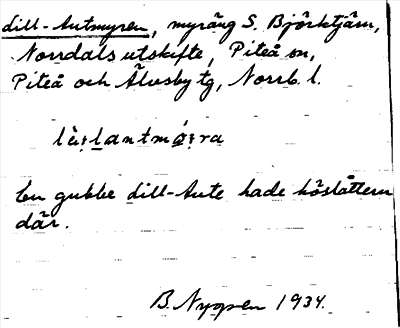 dill-Antmyren, myräng S. Björktjärn,
Norrdals utskifte, Piteå sn,
Piteå och Älvsby tg, Norrb. l.
En gubbe dill-Ante hade höslåttern
där.
B. Nyopen 1934.